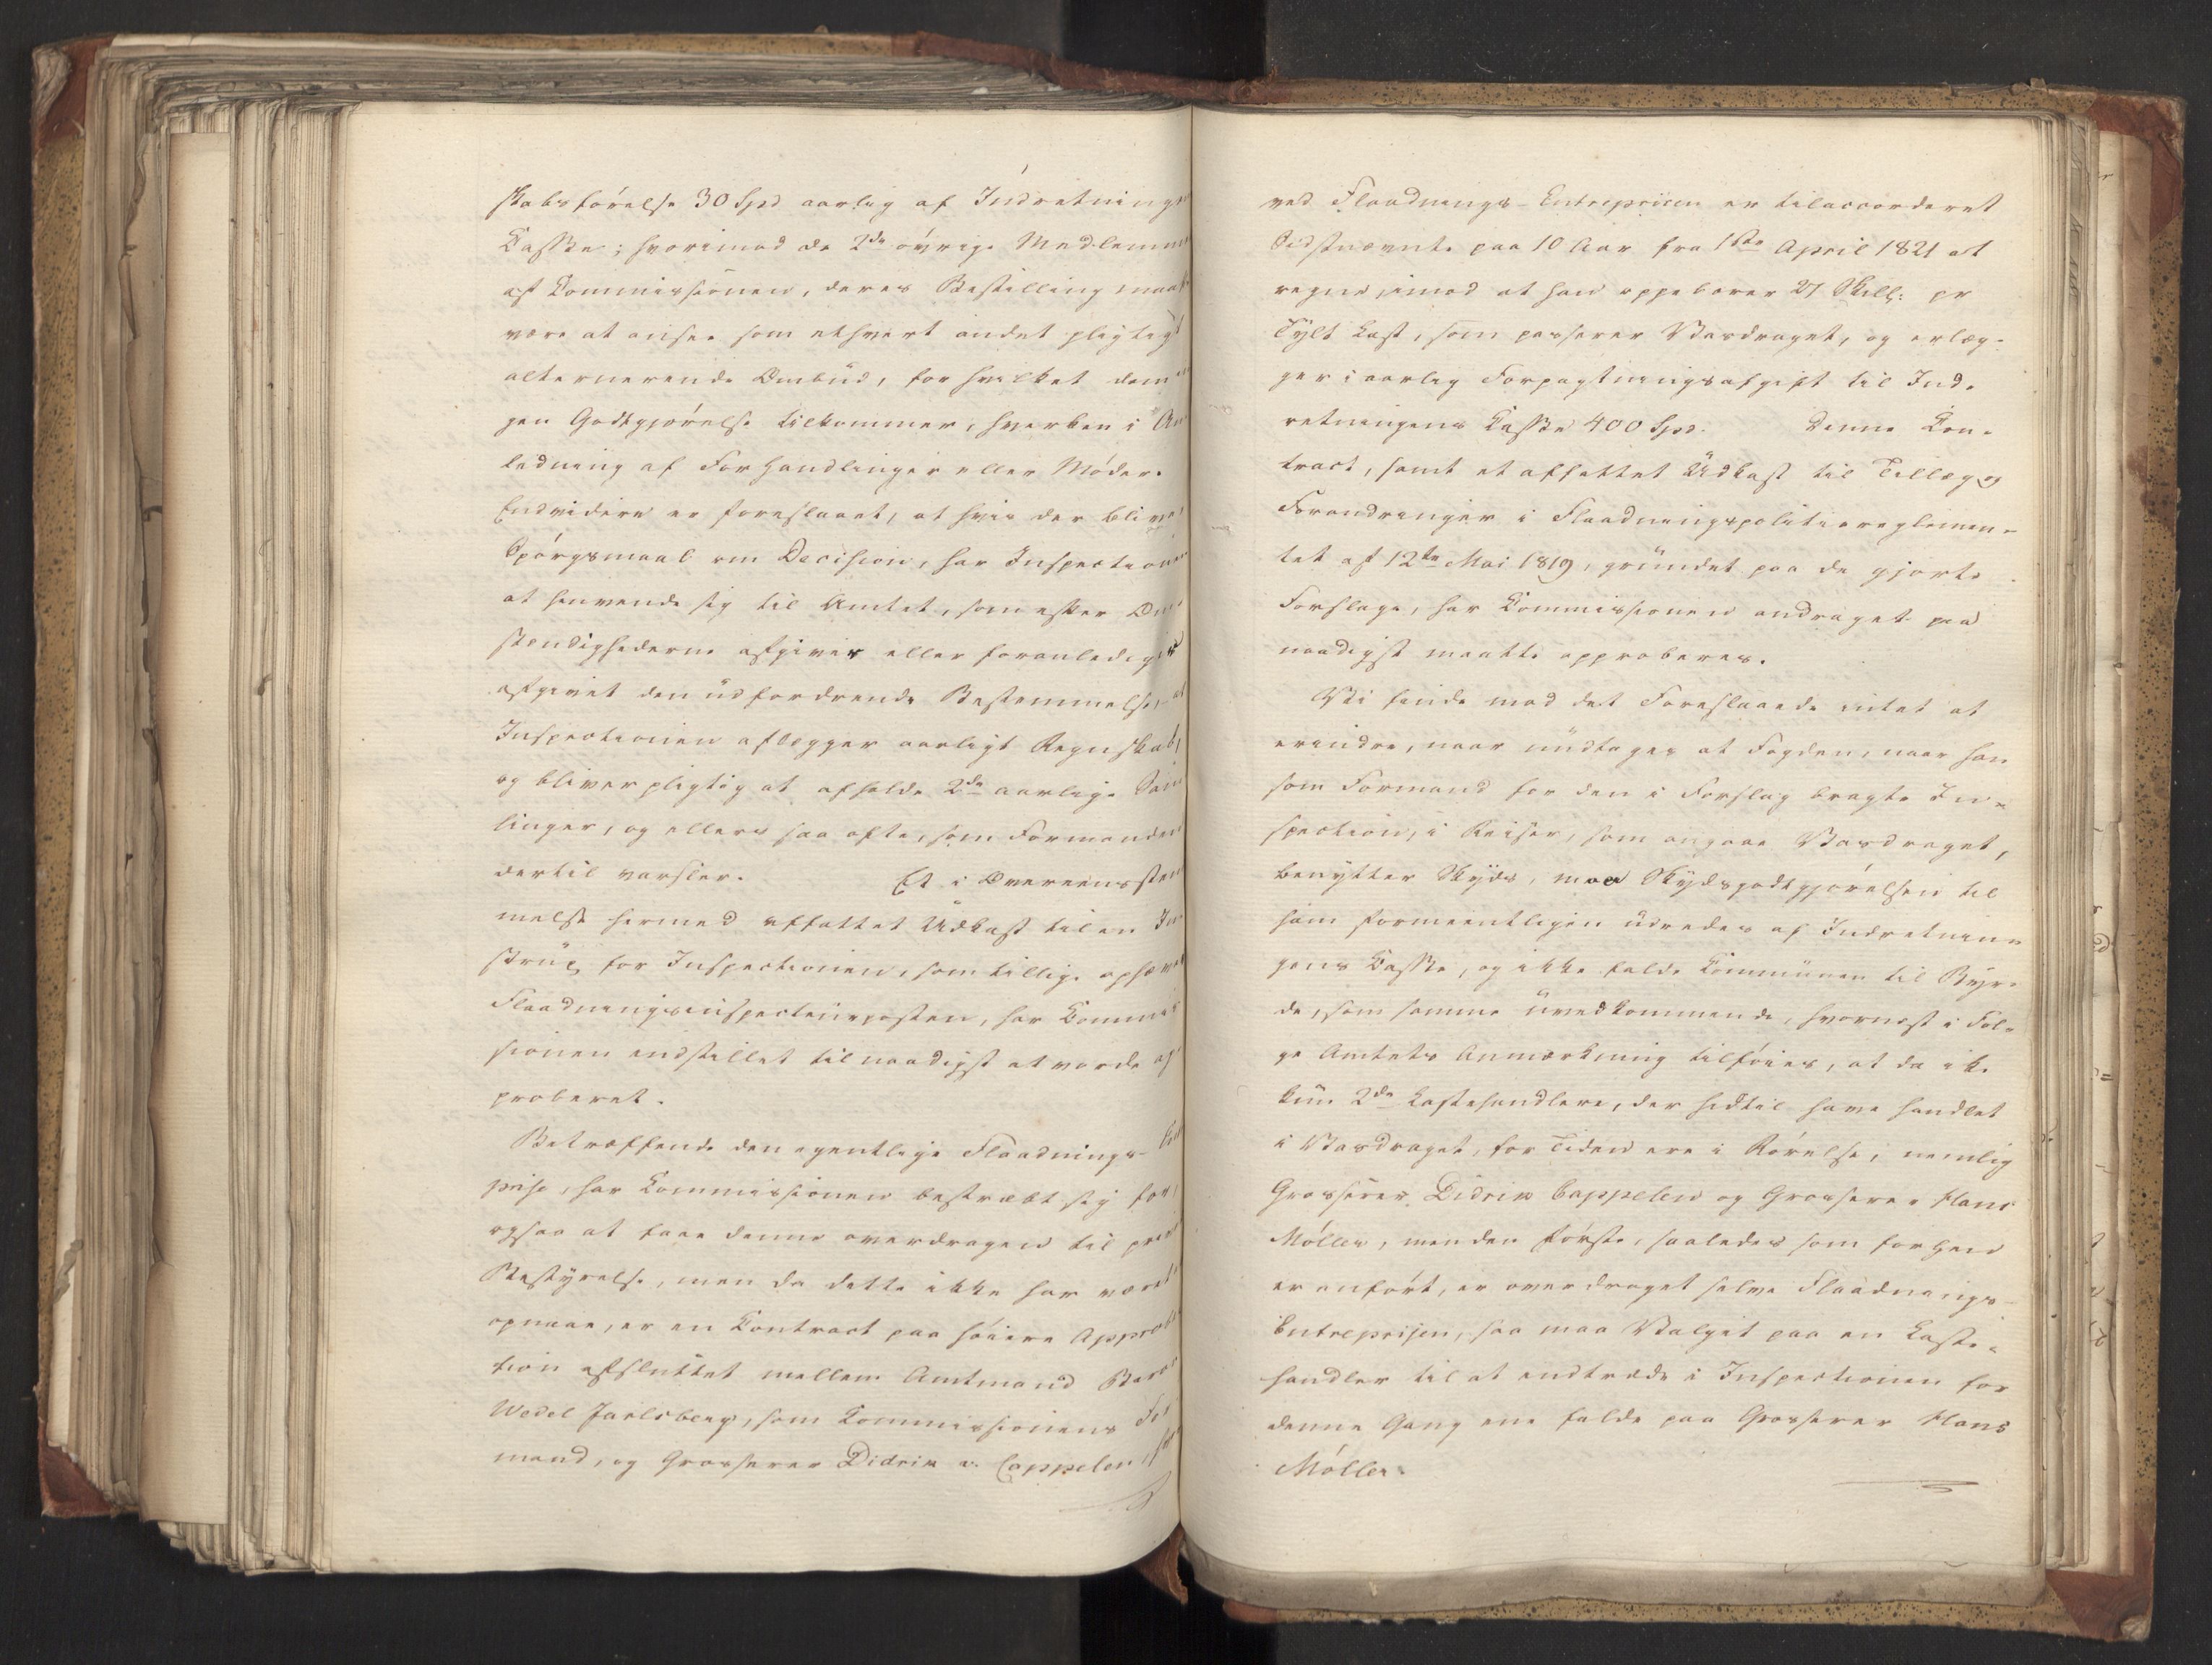 skabsførelse 30 Spd aarlig af Indretningens
Kasse; hvorimod de 2de øvrige Medlemmer
af Kommissionen, deres Bestilling maatte
være at ansee som ethvert andet pligtigt
alternerende Ombud, for hvilket dem in
gen Godtgjørelse tilkommer, hverken i An
ledning af Forhandlinger eller Møder.
Endvidere er foreslaaet, at hvis der bliver
Spørgsmaal om Decision, har Inspectionen
at henvende sig til Amtet, som efter Om
stændighederne afgiver eller foranlediger
afgivet den udfordrende Bestemmelse, at
Inspectionen aflægger aarligt Regnskab,
og bliver pligtig at afholde 2de aarlige Sam
linger, og ellers saa ofte, som Formanden
dertil varsler. Et i Overeensstem
melse hermed affattet Udkast til en In
strux for Inspectionen, som tillige ophæver
Flaadningsinspecteurposten, har Kommis
sionen indstillet til naadigst at vorde ap
proberet.
Betræffende den egentlige Flaadnings-Entre
prise, har Kommissionen bestræbt sig for,
ogsaa at faae denne overdragen til privat
Bestyrelse, men da dette ikke har været at
opnaae, er en Kontract paa høiere Approba
tion afsluttet mellem Amtmand Baron
Wedel Jarlsberg, som Kommissionens For
mand, og Grosserer Didrik v. Cappelen,
ved Flaadnings-Entreprisen er tilaccorderet
Sidstnævnte paa 10 Aar fra 1ste April 1821 at
regne, imod at han oppebærer 27 Skill: pr
Tylt Last, som passerer Vasdraget, og erlæg-
ger i aarlig Forpagtningsafgift til Ind-
retningens Kasse 400 Spd. Denne Kon-
tract, samt et affattet Udkast til Tillæg og
Forandringer i Flaadningspolitiereglemen-
tet af 12te Mai 1819, grundet paa de gjorte
Forslage, har Kommissionen andraget paa
naadigst maatte approberes.
Vi finde mod det Foreslaaede intet at
erindre, naar undtages at Fogden, naar han
som Formand for den i Forslag bragte In-
spection, i Reiser, som angaae Vasdraget,
benytter Skyds, maa Skydsgodtgjørelsen til
ham formeentligen udredes af Indretnin-
gens Kasse, og ikke falde Kommunen til Byr-
de, som samme uvedkommende, hvornæst i Føl-
ge Amtets Anmærkning tilføies, at da ik-
kun 2de Lastehandlere, der hidtil have handlet
i Vasdraget, for Tiden ere i Rørelse, nemlig
Grosserer Didrik Cappelen og Grosserer Hans
Møller, men den første, saaledes som forhen
er anført, er overdraget selve Flaadnings-
Entreprisen, saa maa Valget paa en Laste-
handler til at indtræde i Inspectionen for
denne Gang ene falde paa Grosserer Hans
Møller.